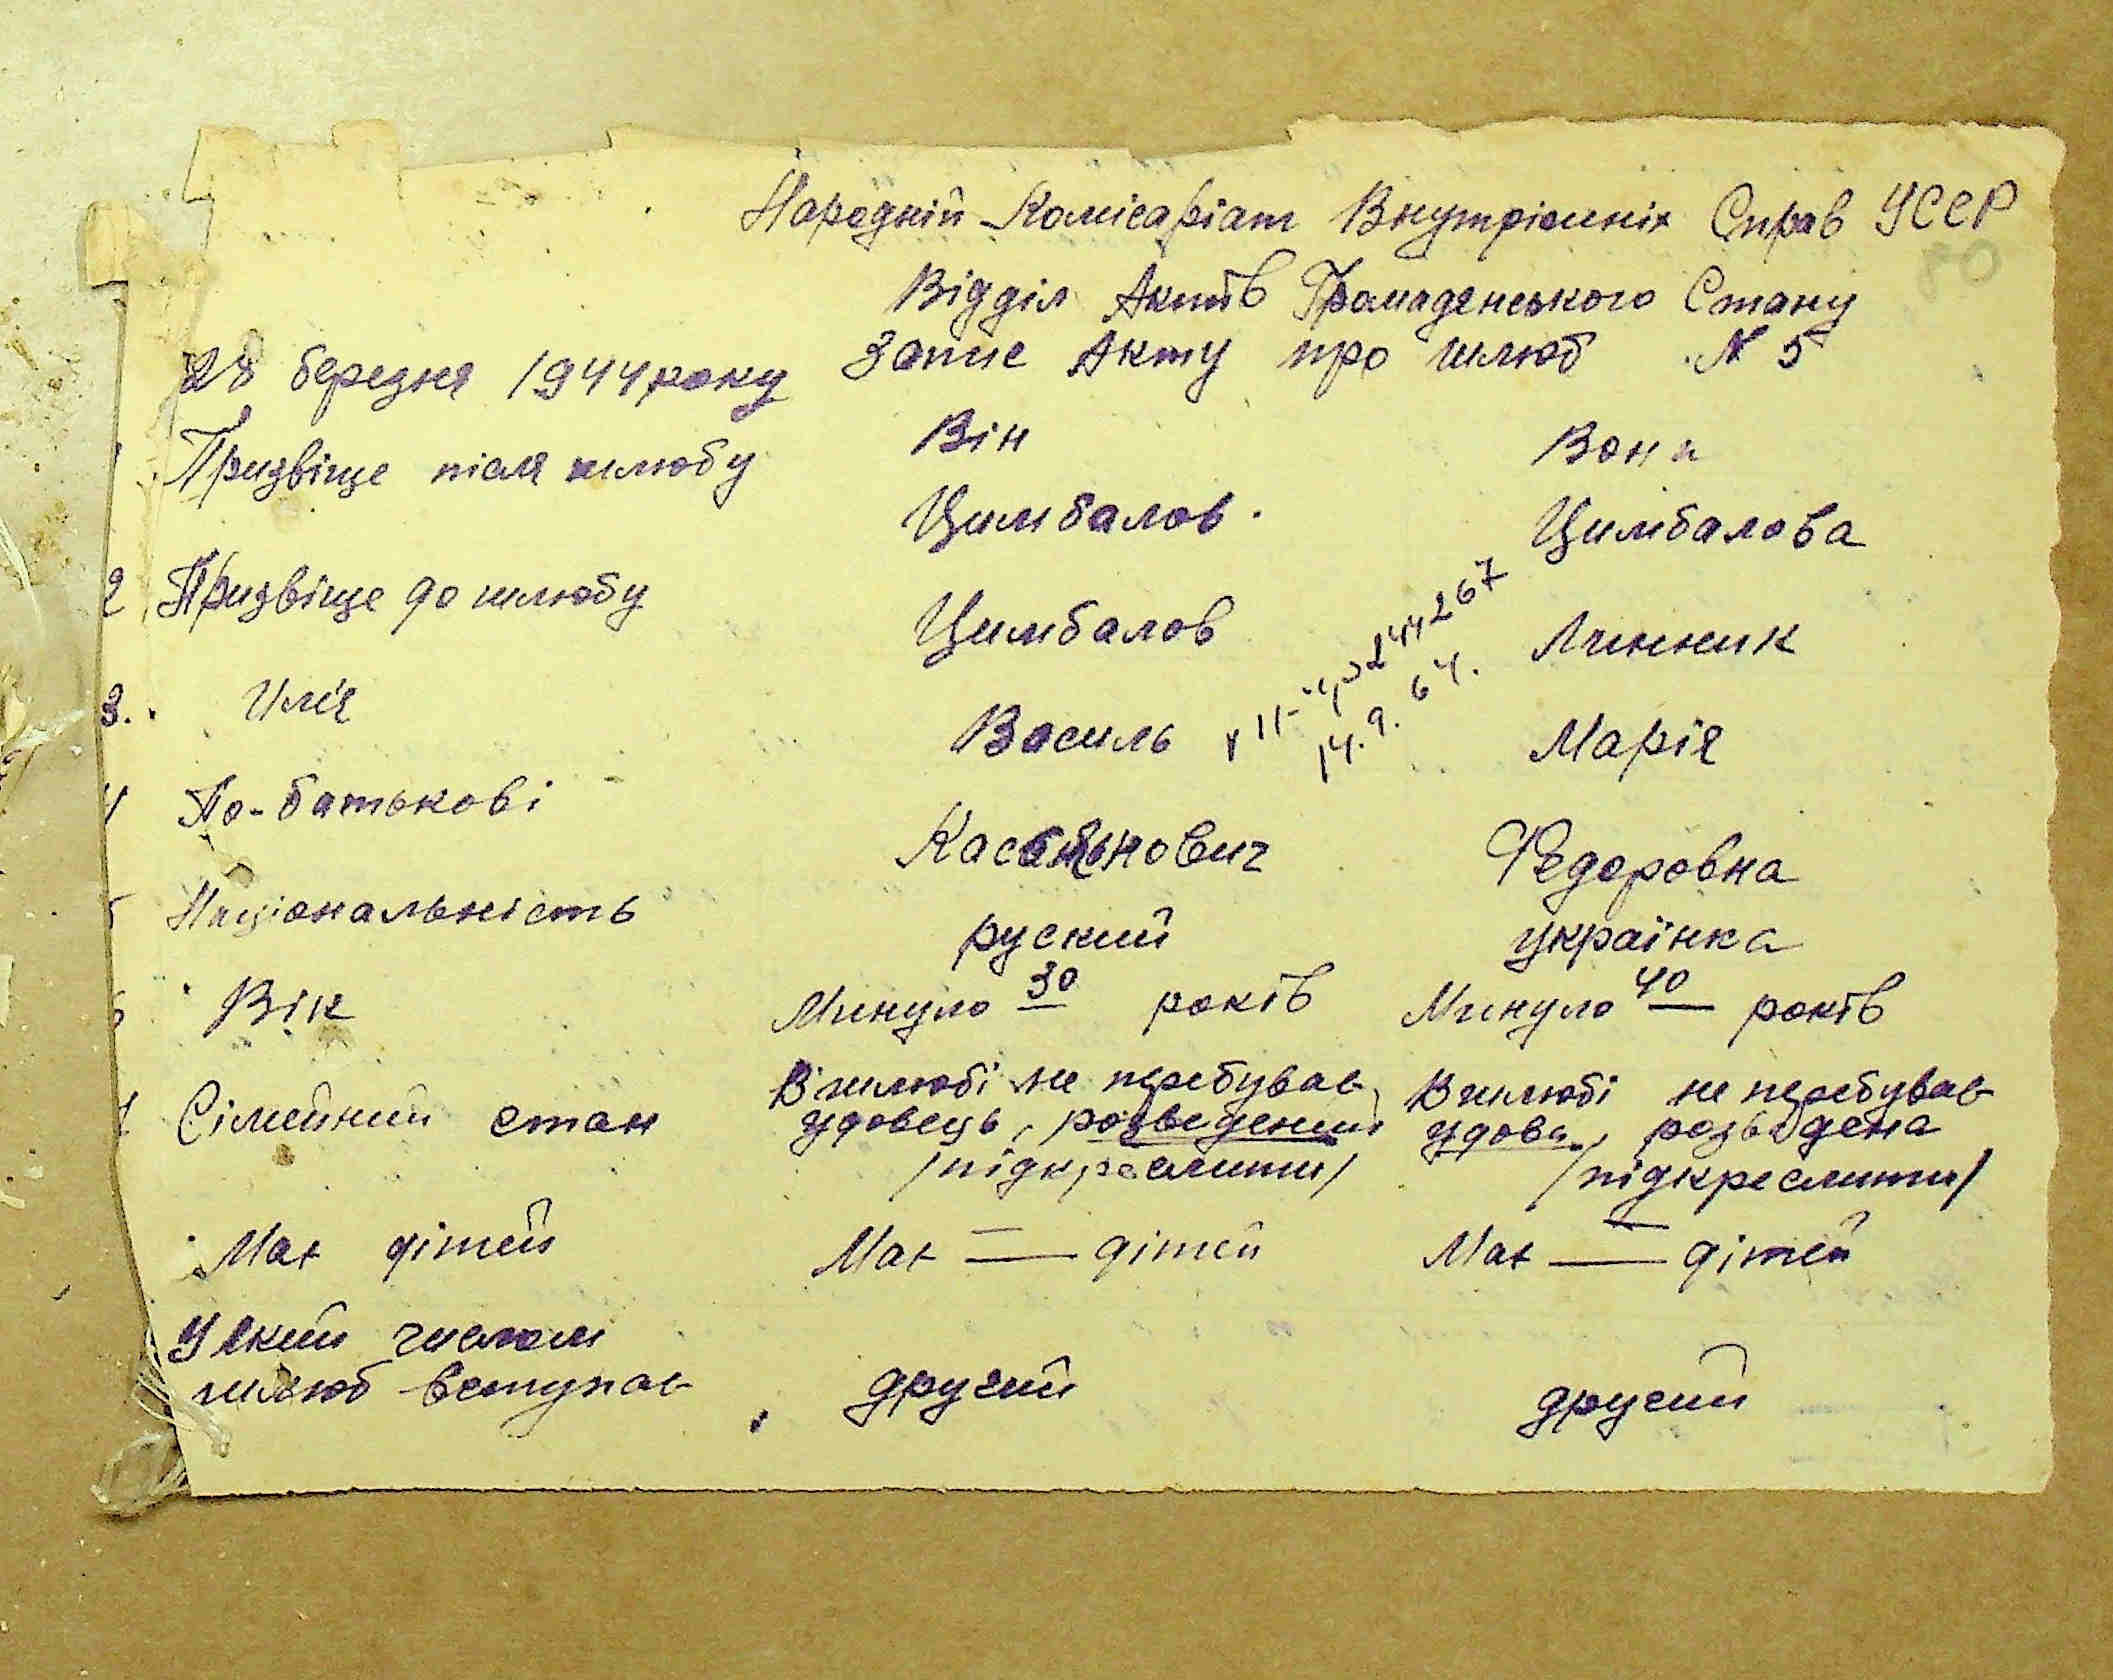 Народній Комісаріат Внутрішніх Справ УССР
Відділ Актів Громадянського Стану
28 березня 1944 року Запис Акту про шлюб № 5
Він Вона
Призвіще після шлюбу Цимбалов. Цимбалова
2 Призвіще до шлюбу Цимбалов Линник
3. Имя Василь Марія
14.9.64.
4 По-батькові Федоровна
5 Національність руский українка
6 Вік Минуло 30 років Минуло 40 років
7 Сімейний стан
В шлюбі не перебував, В шлюбі не перебував
удовець, розведений удова, розведена
/підкреслити/ /підкреслити/
Має дітей Має — дітей Має — дітей
У який числом
шлюб вступає другий другий